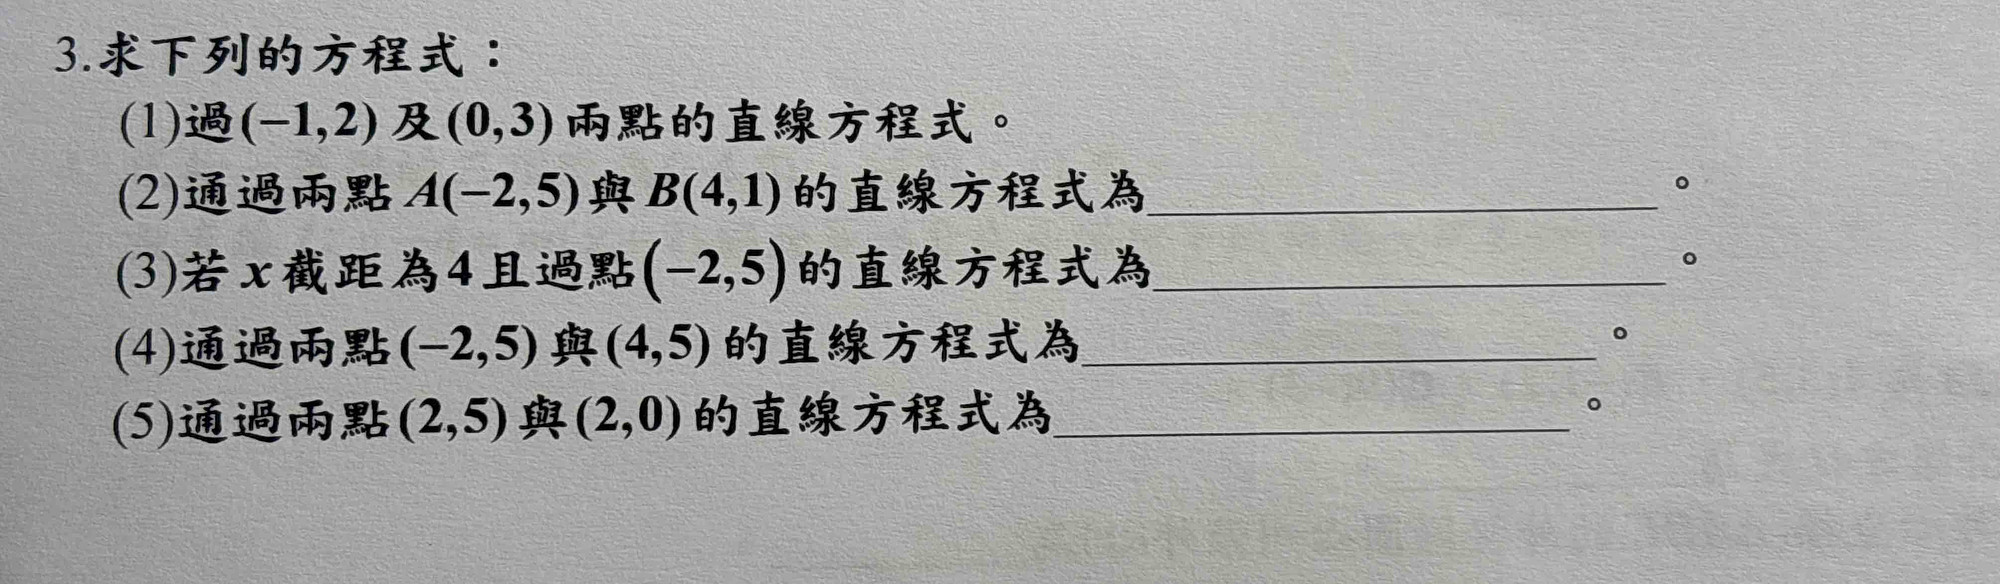 3.求下列的方程式：
(1)過(−1,2)及(0,3)兩點的直線方程式。
(2)通過兩點A(−2,5)與B(4,1)的直線方程式為____________________。
(3)若x截距為4且過點(−2,5)的直線方程式為____________________。
(4)通過兩點(−2,5)與(4,5)的直線方程式為____________________。
(5)通過兩點(2,5)與(2,0)的直線方程式為____________________。